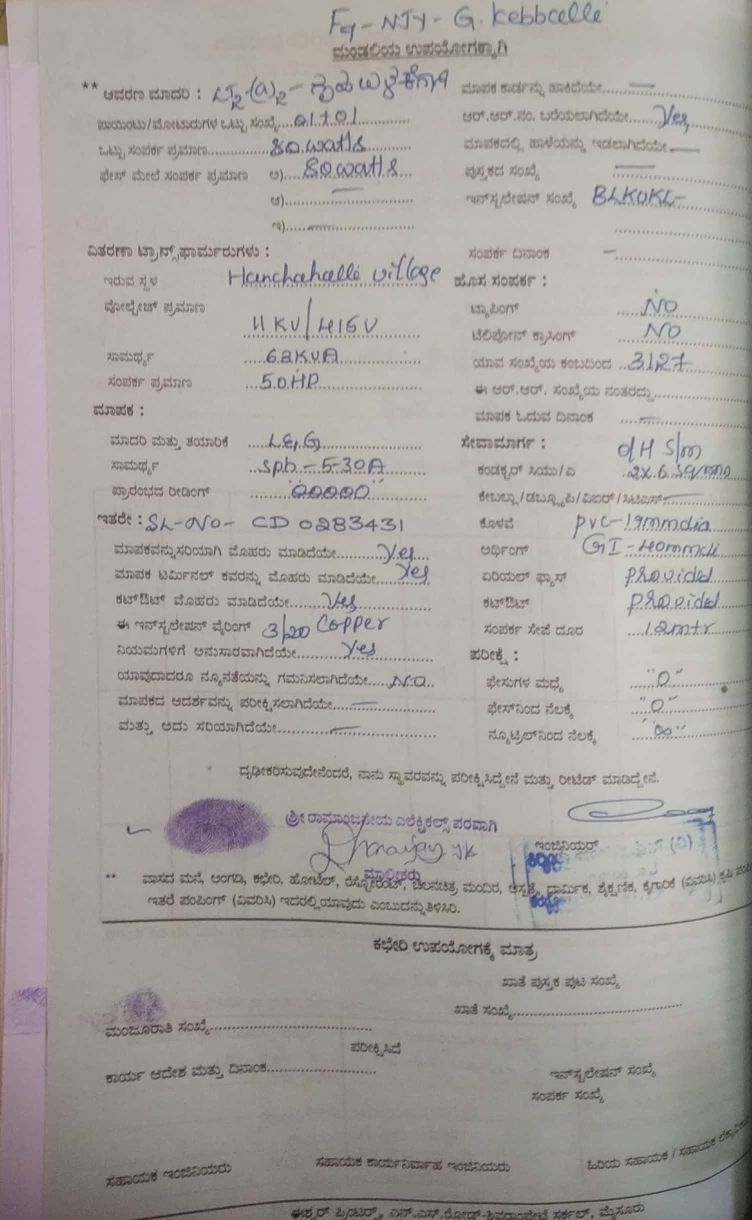 F9-NJY-G. Kebbcalle
ಮಂಡಲಿಯ ಉಪಯೋಗಕ್ಕಾಗಿ
** ಆವರಣ ಮಾದರಿ : LT2-(a)2-ಗೃಹ ಬಳಕೆಗಾಗಿ
ಪಾಯಿಂಟು/ಮೋಟಾರುಗಳ ಒಟ್ಟು ಸಂಖ್ಯೆ....01+01
ಒಟ್ಟು ಸಂಪರ್ಕ ಪ್ರಮಾಣ....80.watts
ಫೇಸ್ ಮೇಲೆ ಸಂಪರ್ಕ ಪ್ರಮಾಣ ಅ)....80watts
ಆ)....—
ಇ)....—
ಮಾಪಕ ಕಾರ್ಡನ್ನು ಹಾಕಿದೆಯೇ....—
ಆರ್.ಆರ್.ನಂ. ಬರೆಯಲಾಗಿದೆಯೇ....Yes
ಮಾಪಕದಲ್ಲಿ ಹಾಳೆಯನ್ನು ಇಡಲಾಗಿದೆಯೇ....—
ಪುಸ್ತಕದ ಸಂಖ್ಯೆ —
ಇನ್‌ಸ್ಟಲೇಷನ್ ಸಂಖ್ಯೆ BLKUKL-
ವಿತರಣಾ ಟ್ರಾನ್ಸ್‌ಫಾರ್ಮರುಗಳು :
ಇರುವ ಸ್ಥಳ Hanchahalli village
ವೋಲ್ಟೇಜ್ ಪ್ರಮಾಣ 11KV/415V
ಸಾಮರ್ಥ್ಯ 63KVA
ಸಂಪರ್ಕ ಪ್ರಮಾಣ 50HP
ಸಂಪರ್ಕ ದಿನಾಂಕ —
ಹೊಸ ಸಂಪರ್ಕ :
ಟ್ಯಾಪಿಂಗ್ NO
ಟೆಲಿಫೋನ್ ಕ್ರಾಸಿಂಗ್ NO
ಯಾವ ಸಂಖ್ಯೆಯ ಕಂಬದಿಂದ 3127
ಈ ಆರ್.ಆರ್. ಸಂಖ್ಯೆಯ ನಂತರದ್ದು
ಮಾಪಕ ಓದುವ ದಿನಾಂಕ —
ಮಾಪಕ :
ಮಾದರಿ ಮತ್ತು ತಯಾರಿಕೆ L&G
ಸಾಮರ್ಥ್ಯ Sph-5-30A
ಪ್ರಾರಂಭದ ರೀಡಿಂಗ್ "00000"
ಇತರೇ : SL-NO- CD 0283431
ಮಾಪಕವನ್ನು ಸರಿಯಾಗಿ ಮೊಹರು ಮಾಡಿದೆಯೇ....Yes
ಮಾಪಕ ಟರ್ಮಿನಲ್ ಕವರನ್ನು ಮೊಹರು ಮಾಡಿದೆಯೇ....Yes
ಕಟ್‌ಔಟ್ ಮೊಹರು ಮಾಡಿದೆಯೇ....Yes
ಈ ಇನ್‌ಸ್ಟಲೇಷನ್ ವೈರಿಂಗ್ 3/20 Copper
ನಿಯಮಗಳಿಗೆ ಅನುಸಾರವಾಗಿದೆಯೇ....Yes
ಯಾವುದಾದರೂ ನ್ಯೂನತೆಯನ್ನು ಗಮನಿಸಲಾಗಿದೆಯೇ....NO
ಮಾಪಕದ ಆದರ್ಶವನ್ನು ಪರೀಕ್ಷಿಸಲಾಗಿದೆಯೇ....—
ಮತ್ತು ಅದು ಸರಿಯಾಗಿದೆಯೇ....—
ಸೇವಾಮಾರ್ಗ : OH S/m
ಕಂಡಕ್ಟರ್ ಸಿಯು/ಎ 2x6sqmm
ಕೇಬಲ್ಲು/ಡಬ್ಲ್ಯೂಪಿ/ವಿಐಆರ್/ಸಿಟಿಎಸ್ —
ಕೊಳವೆ pvc-19mmdia
ಅರ್ಥಿಂಗ್ GI-40mmdi
ಏರಿಯಲ್ ಫ್ಯೂಸ್ Provided
ಕಟ್‌ಔಟ್ provided
ಸಂಪರ್ಕ ಸೇಪೆ ದೂರ 12mtr
ಪರೀಕ್ಷೆ :
ಫೇಸುಗಳ ಮಧ್ಯೆ "0"
ಫೇಸ್‌ನಿಂದ ನೆಲಕ್ಕೆ "0"
ನ್ಯೂಟ್ರಲ್‌ನಿಂದ ನೆಲಕ್ಕೆ "∞"
ದೃಢೀಕರಿಸುವುದೇನೆಂದರೆ, ನಾನು ಸ್ಥಾವರವನ್ನು ಪರೀಕ್ಷಿಸಿದ್ದೇನೆ ಮತ್ತು ರೀಟೆಡ್ ಮಾಡಿದ್ದೇನೆ.
ಶ್ರೀ ರಾಮಾಂಜನೇಯ ಎಲೆಕ್ಟ್ರಿಕಲ್ಸ್ ಪರವಾಗಿ
ಮಾಲೀಕರು
ಇಂಜಿನಿಯರ್
** ವಾಸದ ಮನೆ, ಅಂಗಡಿ, ಕಛೇರಿ, ಹೋಟೆಲ್, ರೆಸ್ಟೋರೆಂಟ್, ಚಲನಚಿತ್ರ ಮಂದಿರ, ಆಸ್ಪತ್ರೆ, ಧಾರ್ಮಿಕ, ಶೈಕ್ಷಣಿಕ, ಕೈಗಾರಿಕೆ (ವಿವರಿಸಿ) ಕೃಷಿ
ಇತರೆ ಪಂಪಿಂಗ್ (ವಿವರಿಸಿ) ಇದರಲ್ಲಿ ಯಾವುದು ಎಂಬುದನ್ನು ತಿಳಿಸಿರಿ.
ಕಛೇರಿ ಉಪಯೋಗಕ್ಕೆ ಮಾತ್ರ
ಖಾತೆ ಪುಸ್ತಕ ಪುಟ ಸಂಖ್ಯೆ
ಖಾತೆ ಸಂಖ್ಯೆ
ಮಂಜೂರಾತಿ ಸಂಖ್ಯೆ
ಪರೀಕ್ಷಿಸಿದೆ
ಕಾರ್ಯ ಆದೇಶ ಮತ್ತು ದಿನಾಂಕ
ಇನ್‌ಸ್ಟಲೇಷನ್ ಸಂಖ್ಯೆ
ಸಂಪರ್ಕ ಸಂಖ್ಯೆ
ಸಹಾಯಕ ಇಂಜಿನಿಯರು
ಸಹಾಯಕ ಕಾರ್ಯನಿರ್ವಾಹ ಇಂಜಿನಿಯರು
ಹಿರಿಯ ಸಹಾಯಕ / ಸಹಾಯಕ
ಈಶ್ವರ್ ಪ್ರಿಂಟರ್ಸ್, ಎನ್.ಎಸ್.ರೋಡ್-ಶಿವರಾಂಪೇಟೆ ಸರ್ಕಲ್, ಮೈಸೂರು